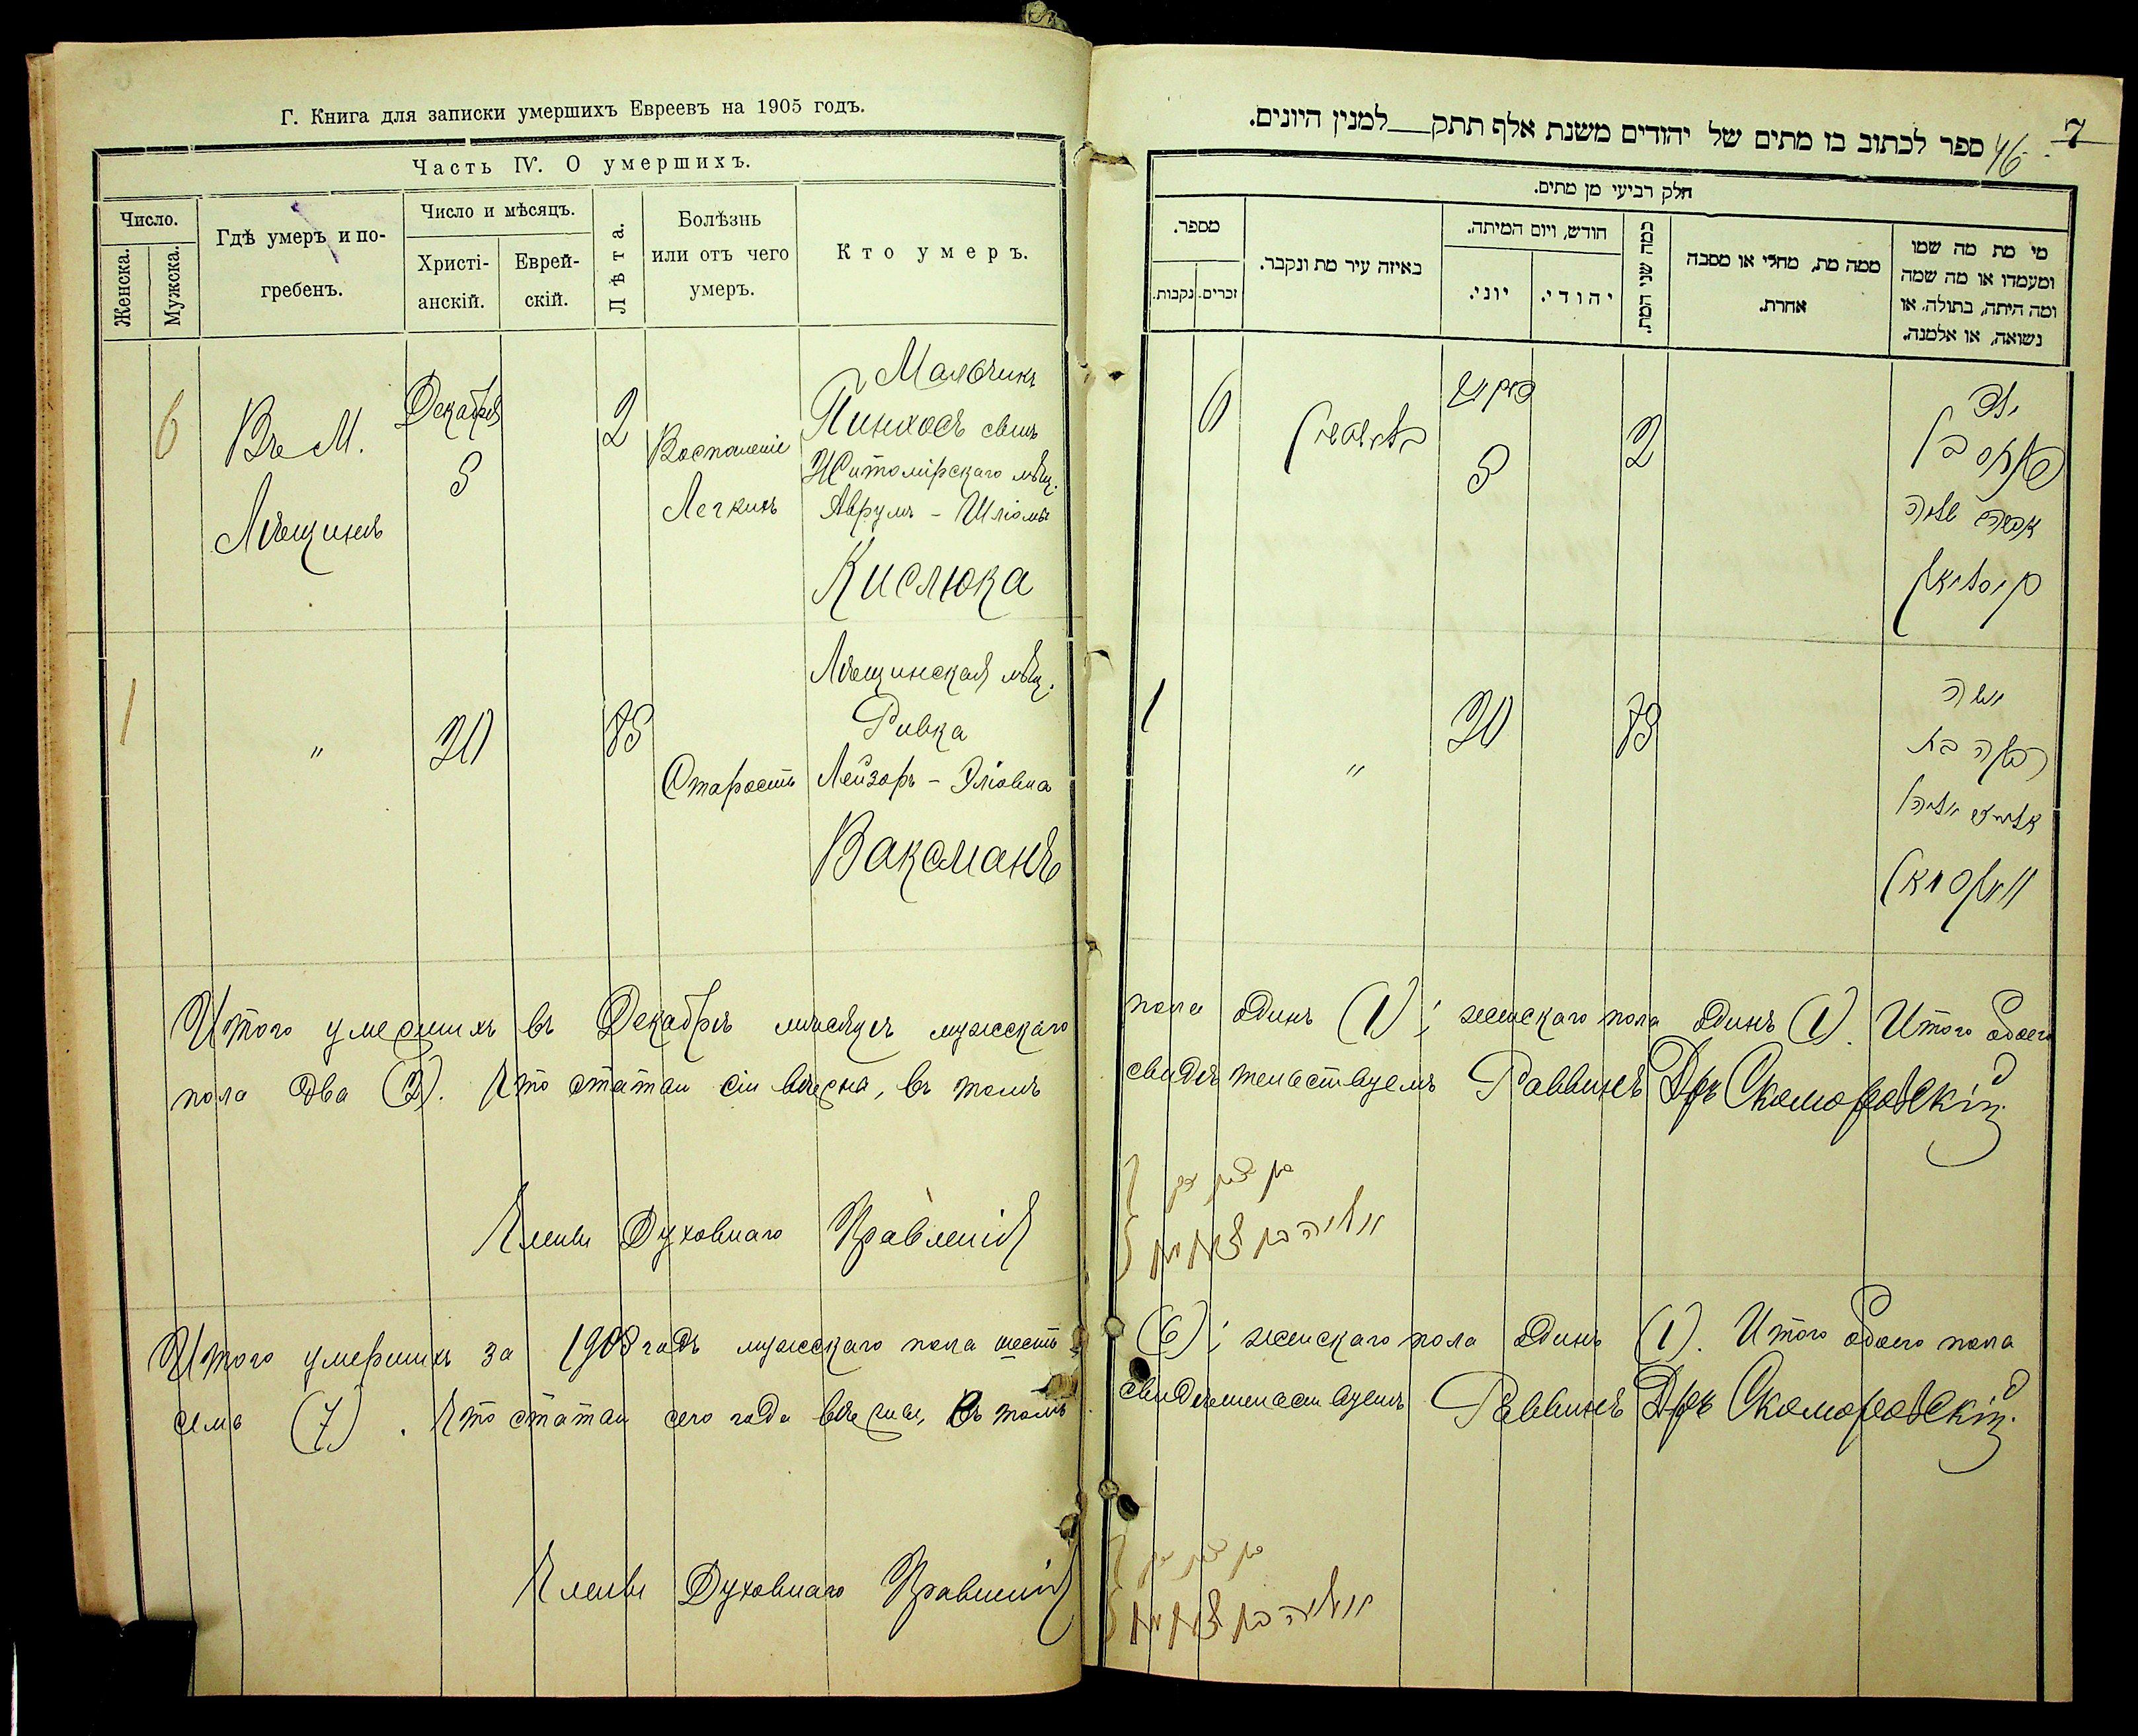 Г. Книга для записки умершихъ Евреевъ на 1905 годъ.
Часть IV. О умершихъ.
Число.
Женска.
Мужска.
Гдѣ умеръ и по-
гребенъ.
Число и мѣсяцъ.
Христі-
анскій.
Еврей-
скій.
Лѣта.
Болѣзнь
или отъ чего
умеръ.
Кто умеръ.
6
Въ М.
Лѣщинѣ
Декабря
5
2
Воспаленіе
Легкихъ
Мальчикъ
Пинхосъ сынъ
Житомірскаго мѣщ.
Аврумъ - Шліомы
Кислюка
1
"
20
75
Старость
Лѣщинская мѣщ.
Ривка
Лейзоръ - Эліовна
Ваксманъ
Итого умершихъ въ Декабрѣ мѣсяцѣ мужскаго
пола два (2). Что статьи сіи вѣрны, въ томъ
Члены Духовнаго Правленія
Итого умершихъ за 1905 годъ мужскаго пола шесть
семь (7). Что статьи сего года вѣрны, въ томъ
Члены Духовнаго Правленія
46
7
ספר לכתוב בו מתים של יהודים משנת אלף תתק למנין היונים.
חלק רביעי מן מתים.
מספר.
נקבות.
זכרים.
באיזה עיר מת ונקבר.
חודש, ויום המיתה.
יוני.
יהודי.
כמה שני המת.
ממה מת, מחלי או מסבה
אחרת.
מי מת מה שמו
ומעמדו או מה שמה
ומה היתה, בתולה, או
נשואה, או אלמנה.
6
5
2
ילד
פנחס בן
אברהם שלמה
קיסליוק
1
"
20
75
אשה
רבקה בת
אליעזר אליהו
וואקסמאן
пола одинъ (1); женскаго пола одинъ (1). Итого обоего
свидѣтельствуемъ Раввинъ Д-ръ Скоморовскій.
(6); женскаго пола одинъ (1). Итого обоего пола
свидѣтельствуемъ Раввинъ Д-ръ Скоморовскій.